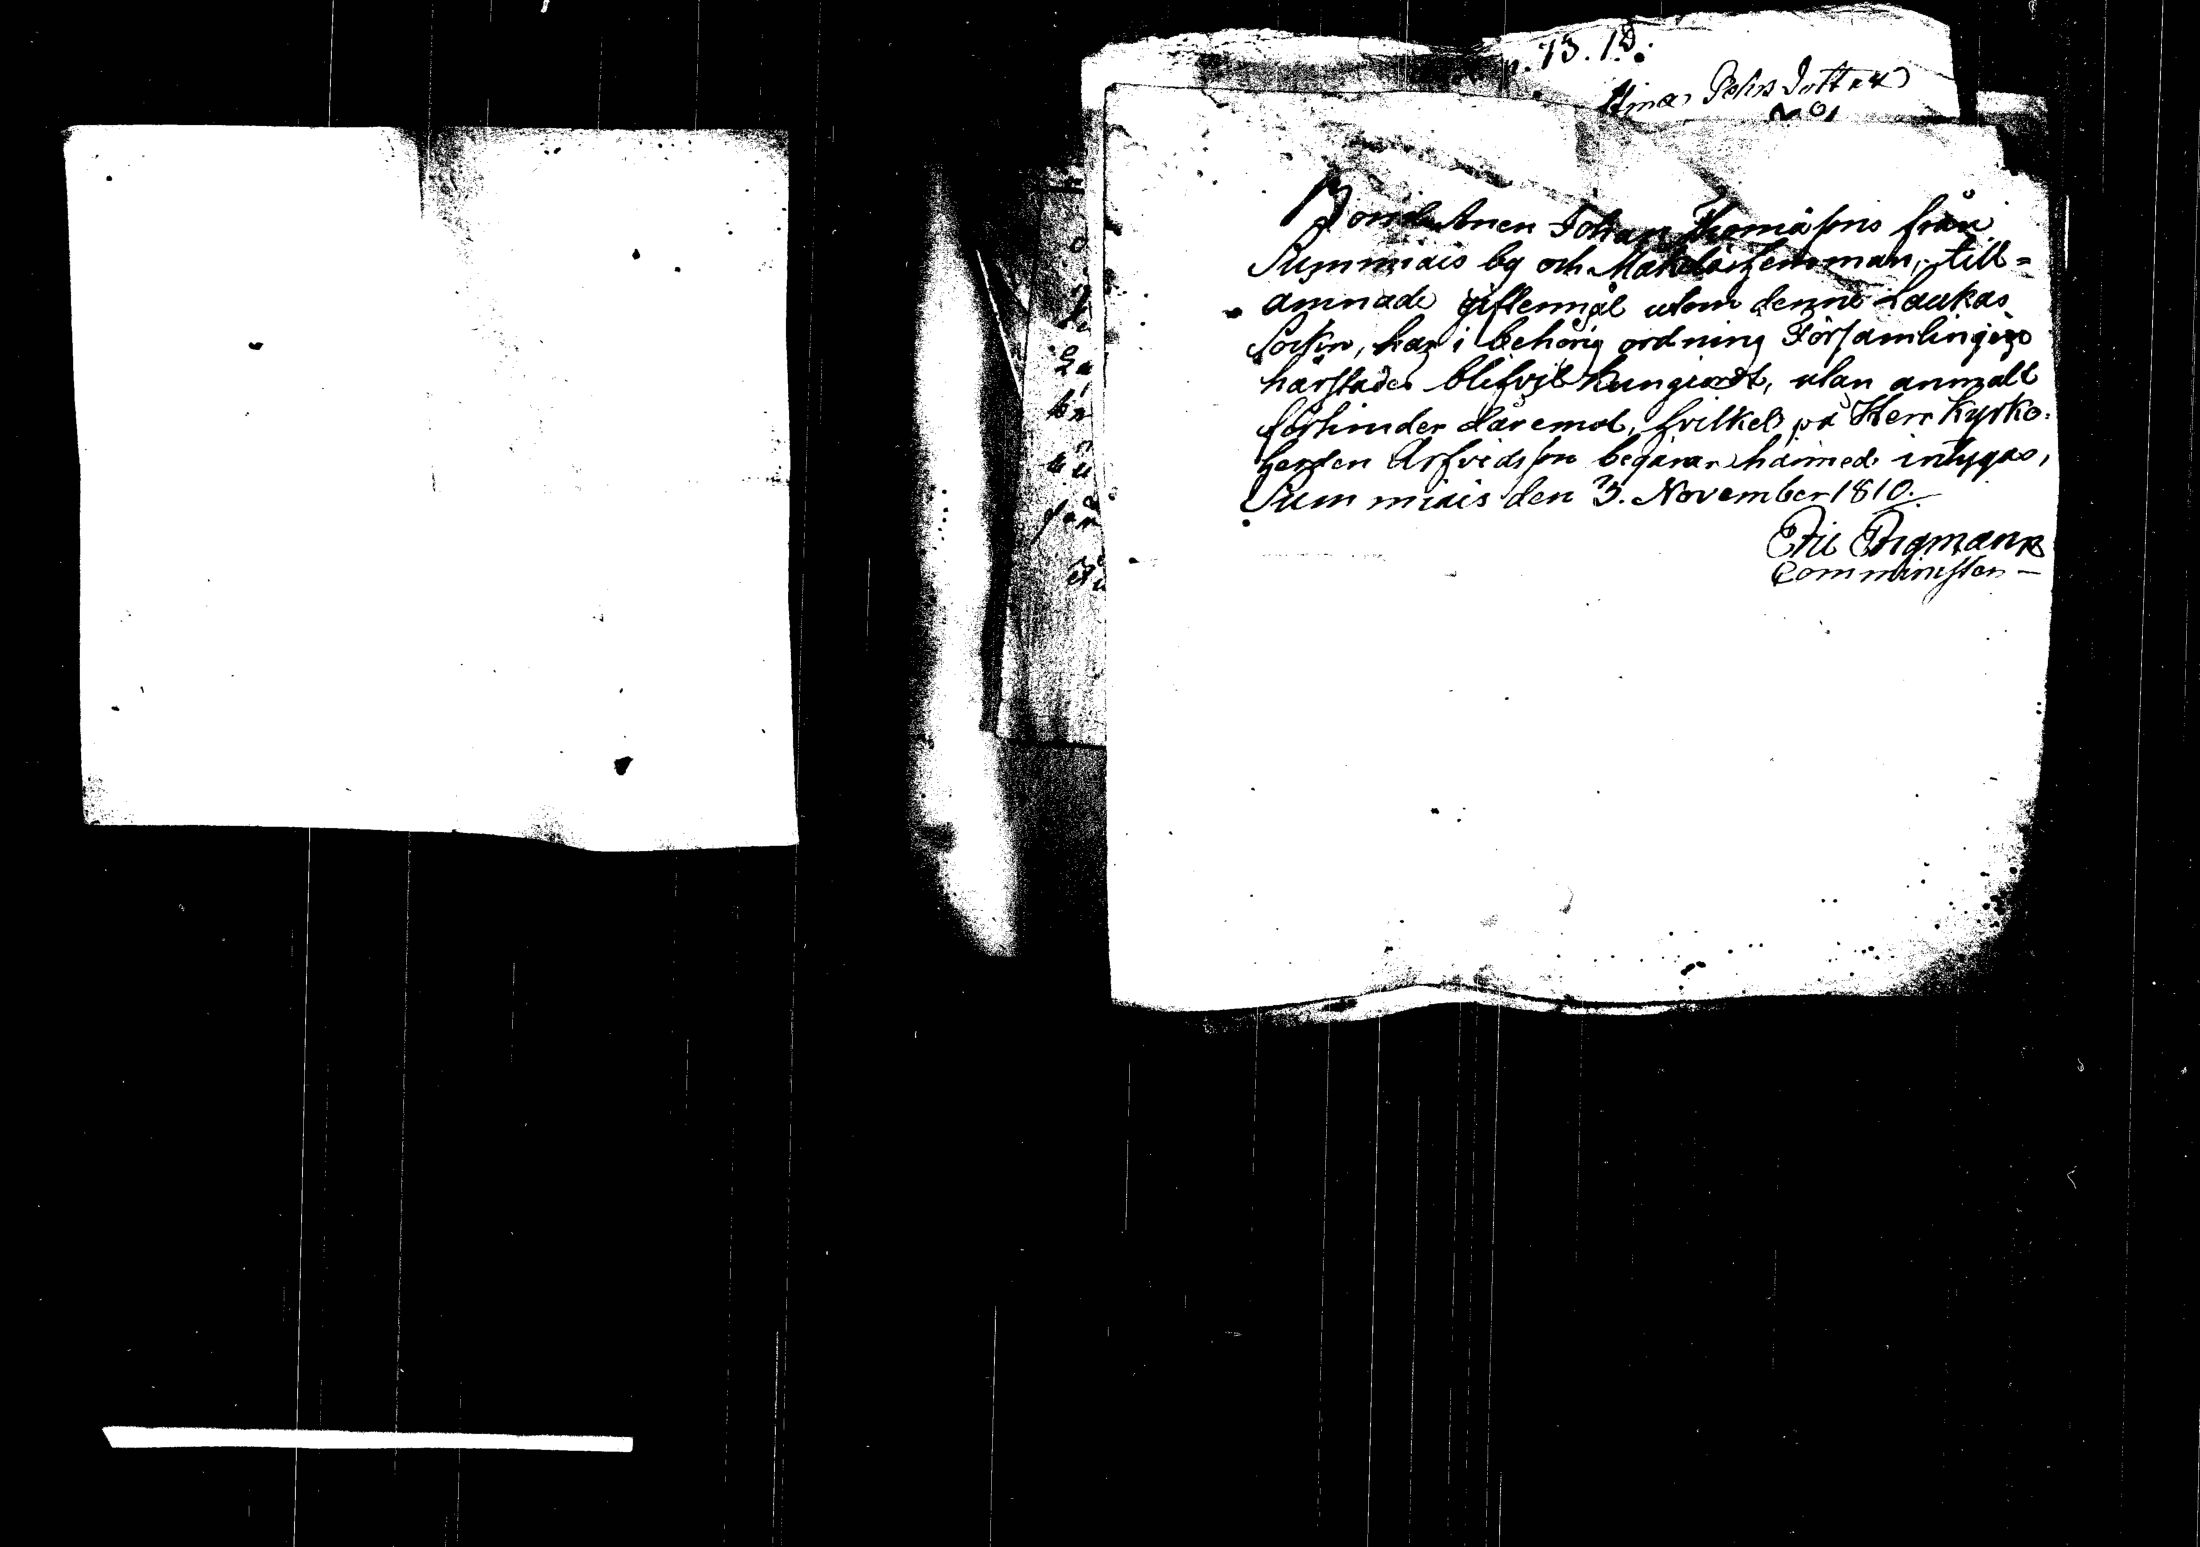 n. 13. 18:
Pehrs Dotter
Bondesonen Johan Thomasons från
Summiais by och Makelä hemman, till-
amnade giftermål utom denne Laukas
Sokn, har i behörig ordning Församlingen
härstädes blifvit kungiordt, utan anmält
förhinder däremot, hvilket på Herr Kyrko-
herden Arfvidsson begäran härmed intygas,
Summiais den 3. November 1810.
Eric
Comminister